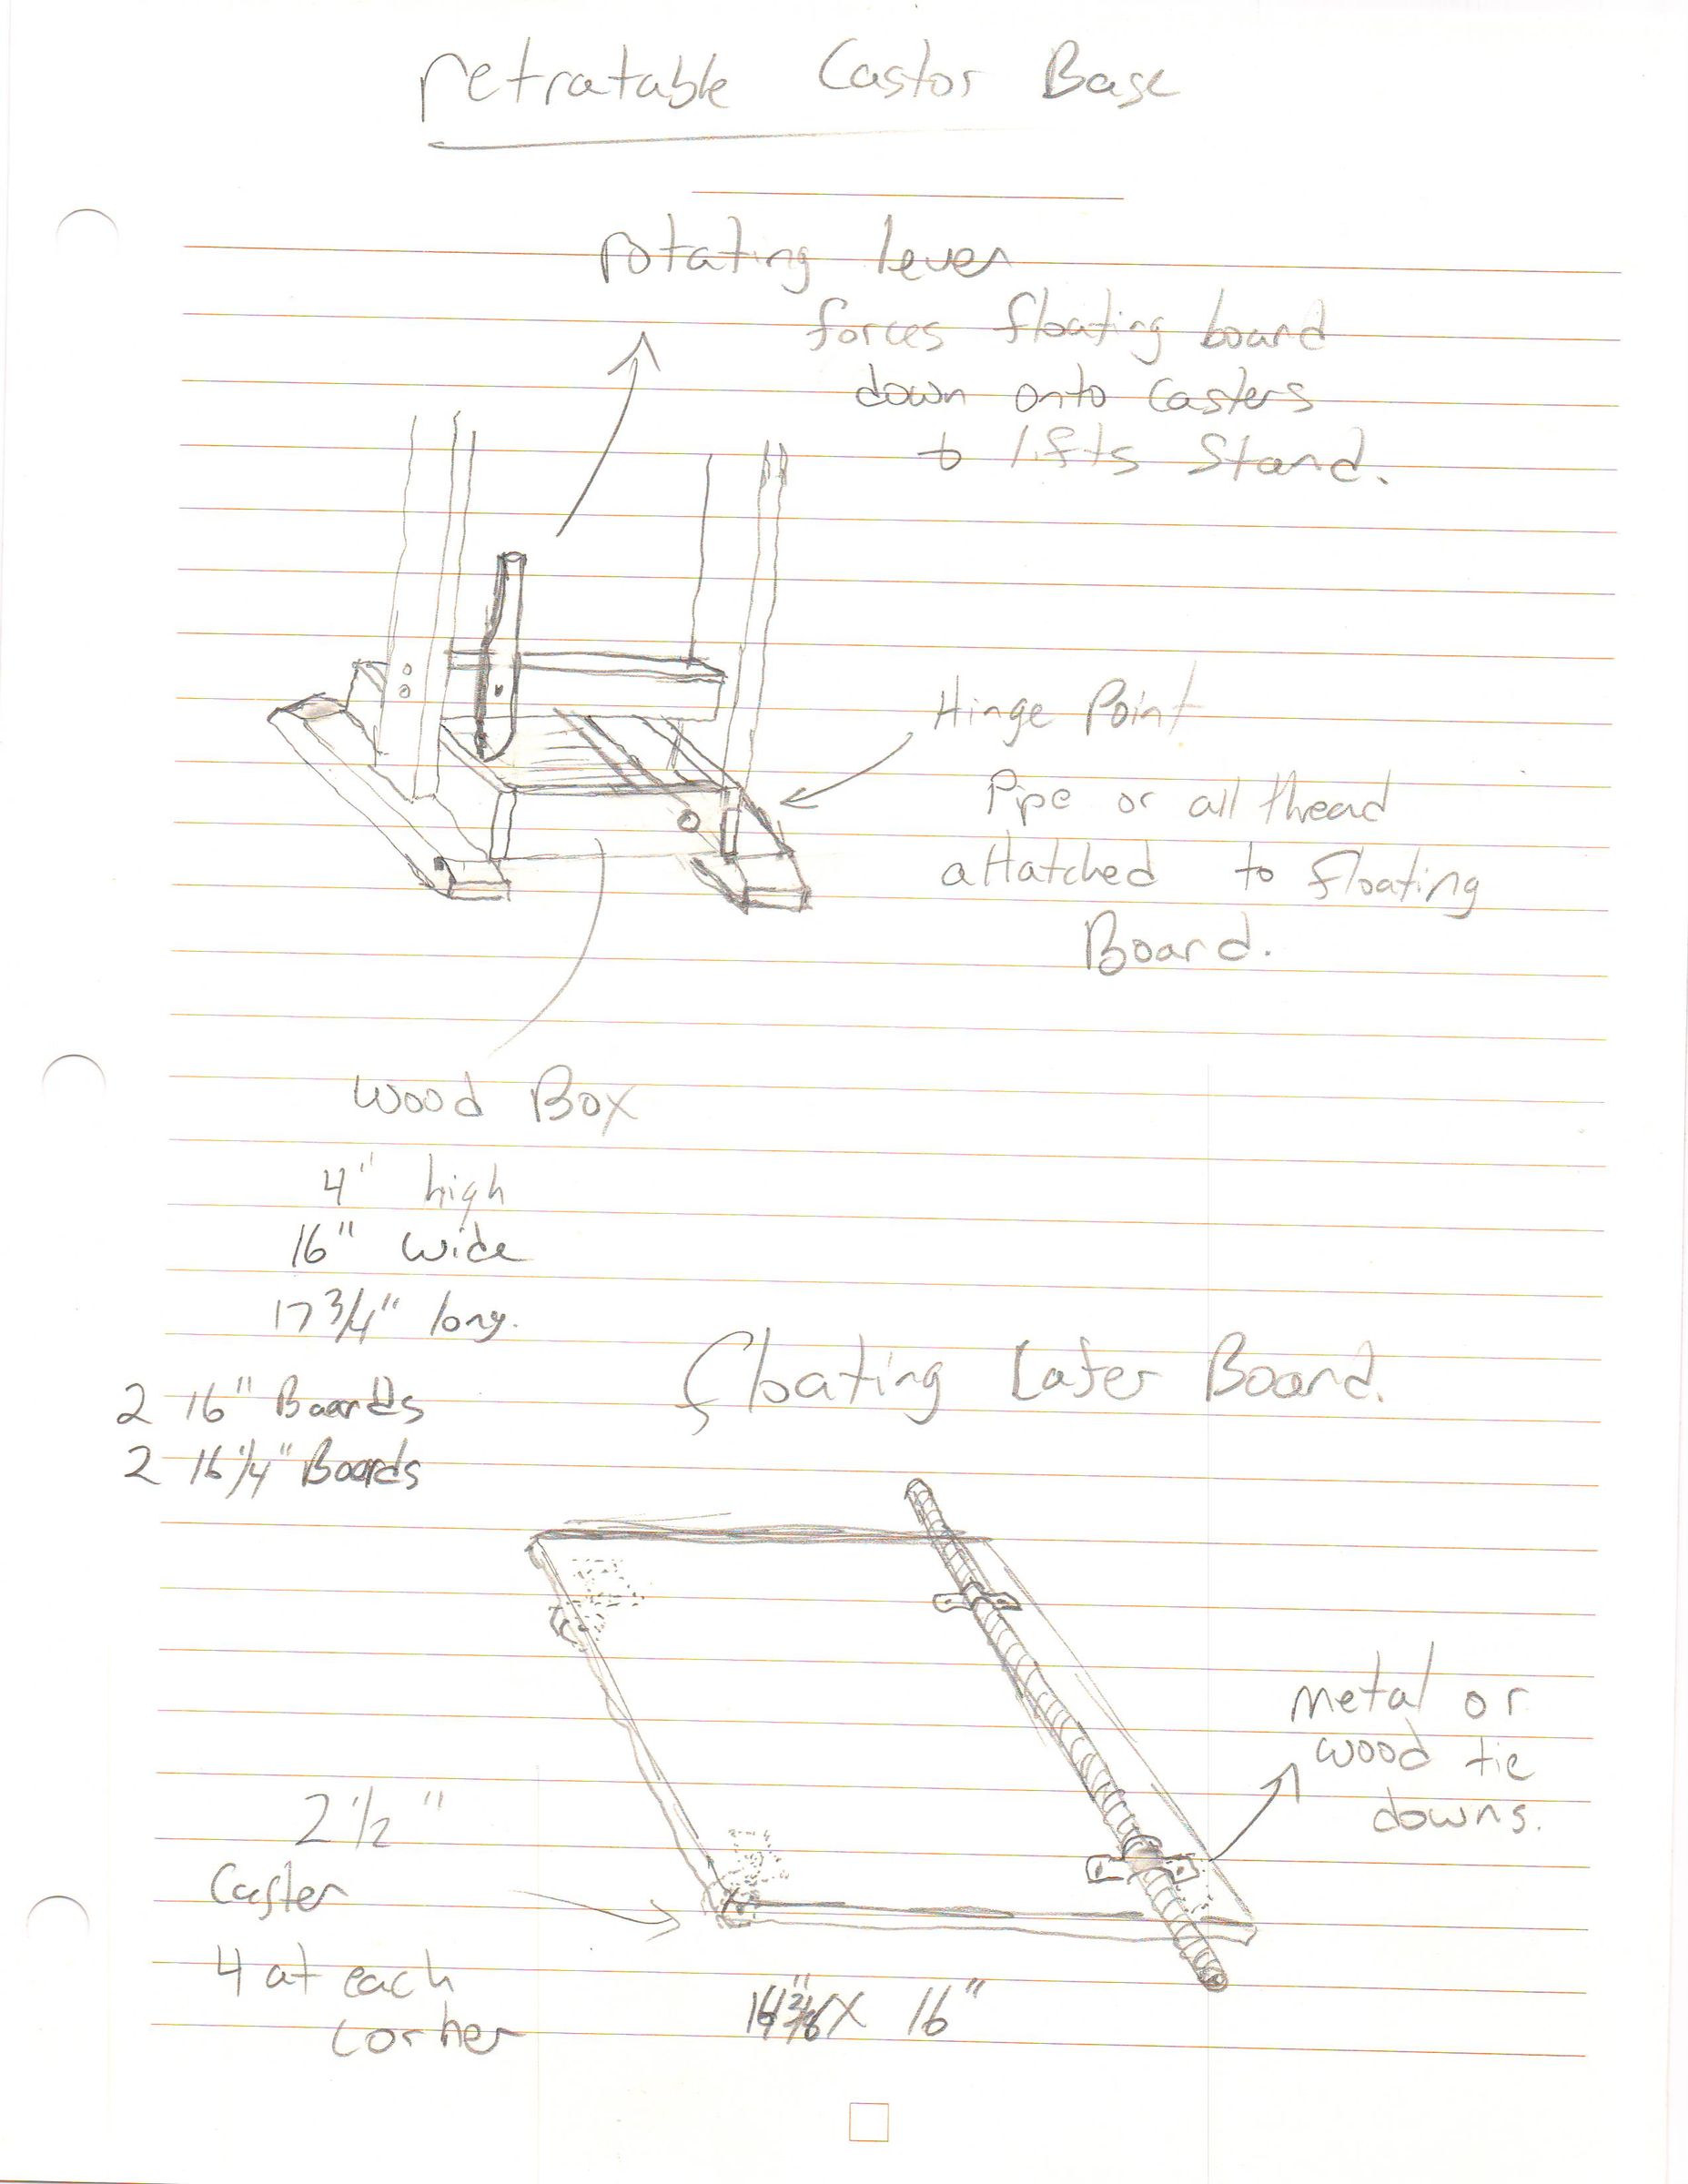 retratable Castor Base
rotating lever
forces floating board
down onto Casters
to lifts Stand.
Hinge Point
Pipe or all thread
attatched to floating
Board.
Wood Box
4" high
16" Wide
17 3/4" long.
2 16" Boards
2 16 1/4" Boards
floating Board.
metal or
wood tie
downs.
2 1/2"
Caster
4 at each
corner
X 16"